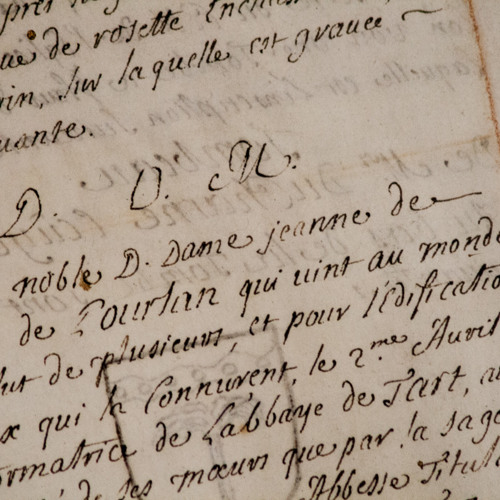 ue de rosette
rin, sur laquelle est gravée
uante.
D. O. M.
noble D. Dame jeanne de
de Pourlan qui vint au monde
lut de plusieurs, et pour l'édificatio
x qui la Connurent, le 2.me Avril
ormatrice de Labbaye de Tart, a
de ses mœurs que par la sage
Abbesse Titul